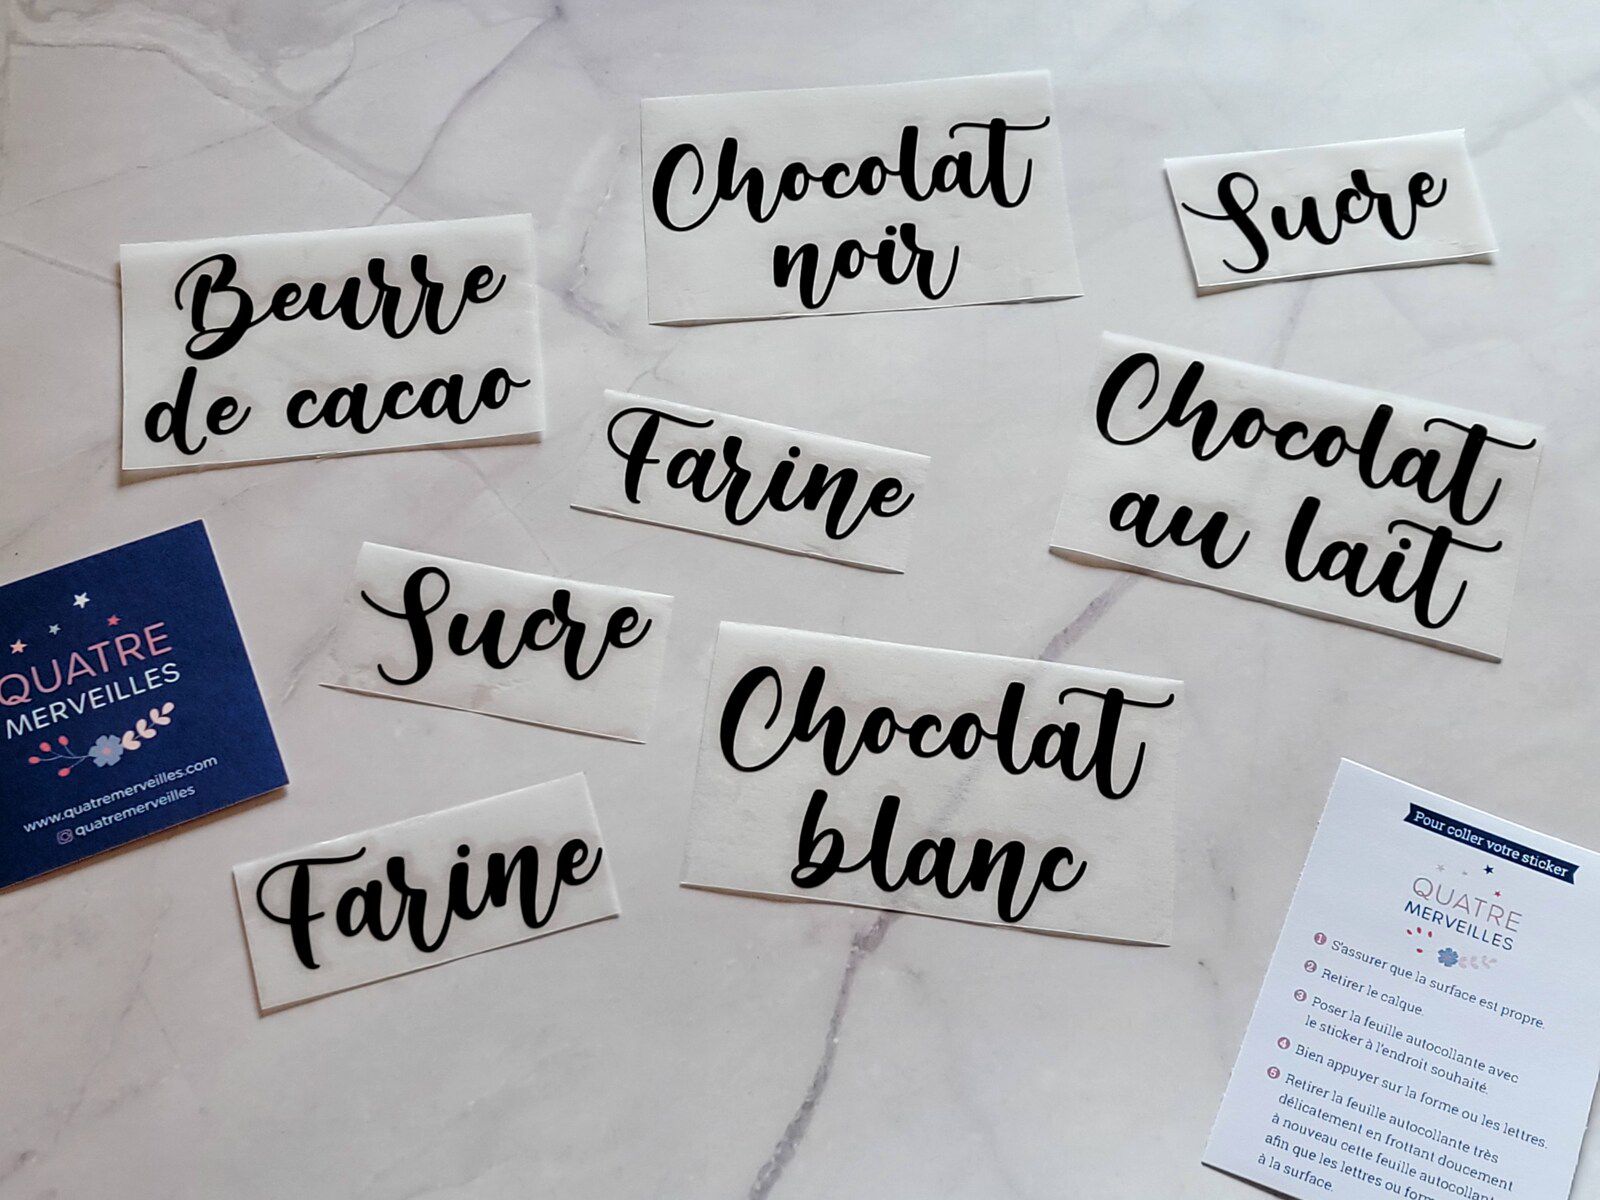 Chocolat
noir
Sucre
Beurre
de cacao
Chocolat
au lait
Farine
Sucre
Chocolat
blanc
Farine
QUATRE
MERVEILLES
www.quatremerveilles.com
quatremerveilles
Pour coller votre sticker
QUATRE
MERVEILLES
1 S'assurer que la surface est propre.
2 Retirer le calque.
3 Poser la feuille autocollante avec
le sticker à l'endroit souhaité.
4 Bien appuyer sur la forme ou les lettres.
5 Retirer la feuille autocollante très
délicatement en frottant doucement
à nouveau cette feuille autocollan
afin que les lettres ou for
à la surface.